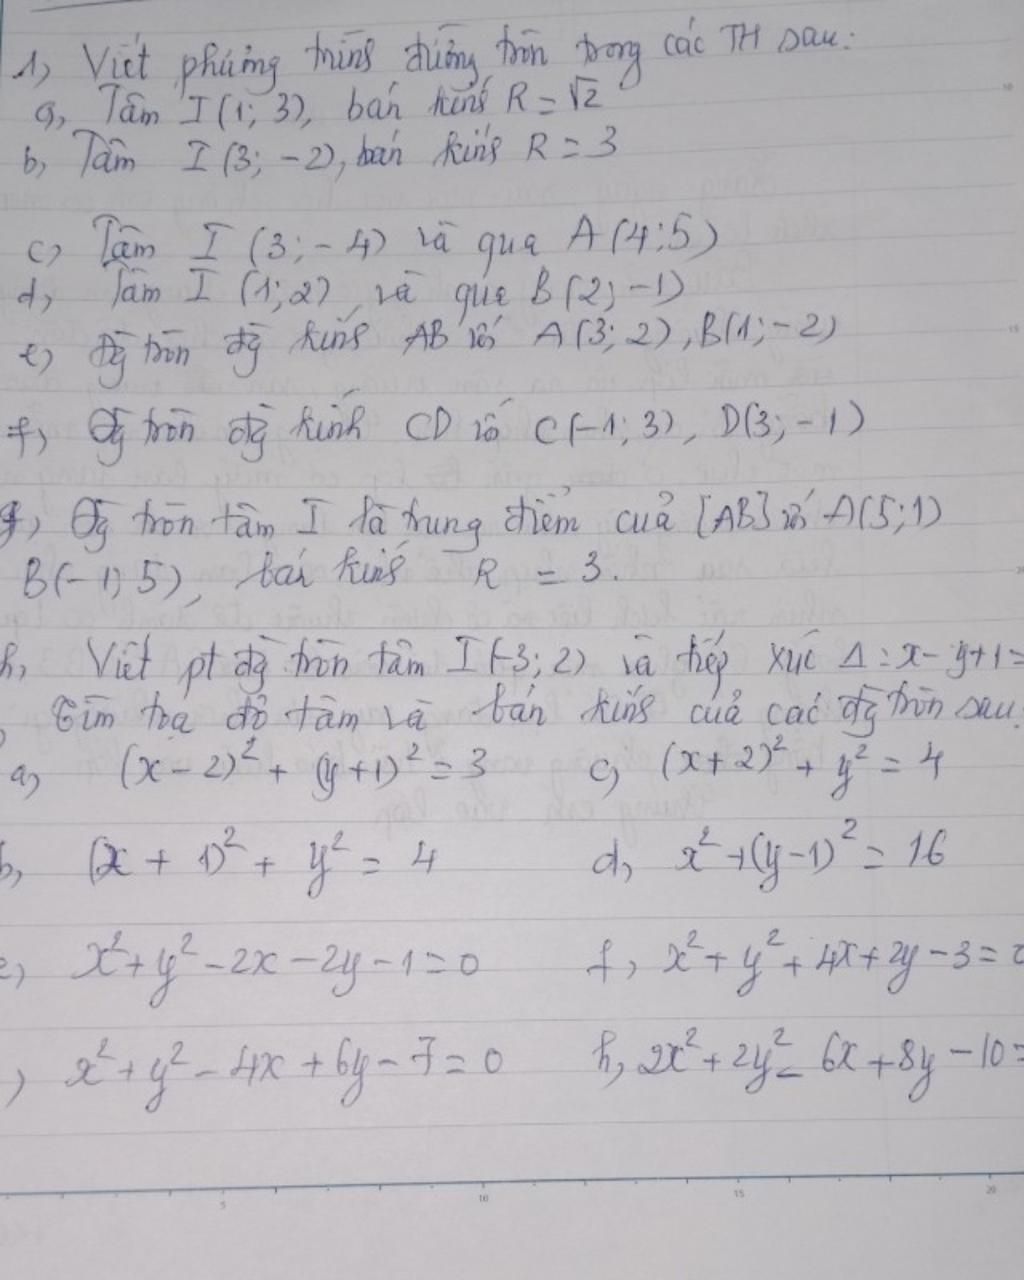 1, Viết phương trình đường tròn trong các TH sau:
a, Tâm I(1; 3), bán kính R = √2
b, Tâm I(3; -2), bán kính R = 3
c, Tâm I (3; -4) và qua A(4;5)
d, Tâm I (1;2) và qua B(2; -1)
e, Đg tròn đg kính AB với A(3; 2), B(1; -2)
f, Đg tròn đg kính CD với C(-1; 3), D(3; -1)
g, Đg tròn tâm I là trung điểm của [AB] với A(5;1)
B(-1; 5), bán kính R = 3.
h, Viết pt đg tròn tâm I(-3; 2) và tiếp xúc Δ: x - y + 1 =
Tìm toạ độ tâm và bán kính của các đg tròn sau:
a, (x - 2)² + (y + 1)² = 3 c, (x + 2)² + y² = 4
b, (x + 1)² + y² = 4 d, x² + (y - 1)² = 16
e, x² + y² - 2x - 2y - 1 = 0 f, x² + y² + 4x + 2y - 3 = 0
, x² + y² - 4x + 6y - 7 = 0 h, 2x² + 2y² - 6x + 8y - 10 =
5 10 15 20